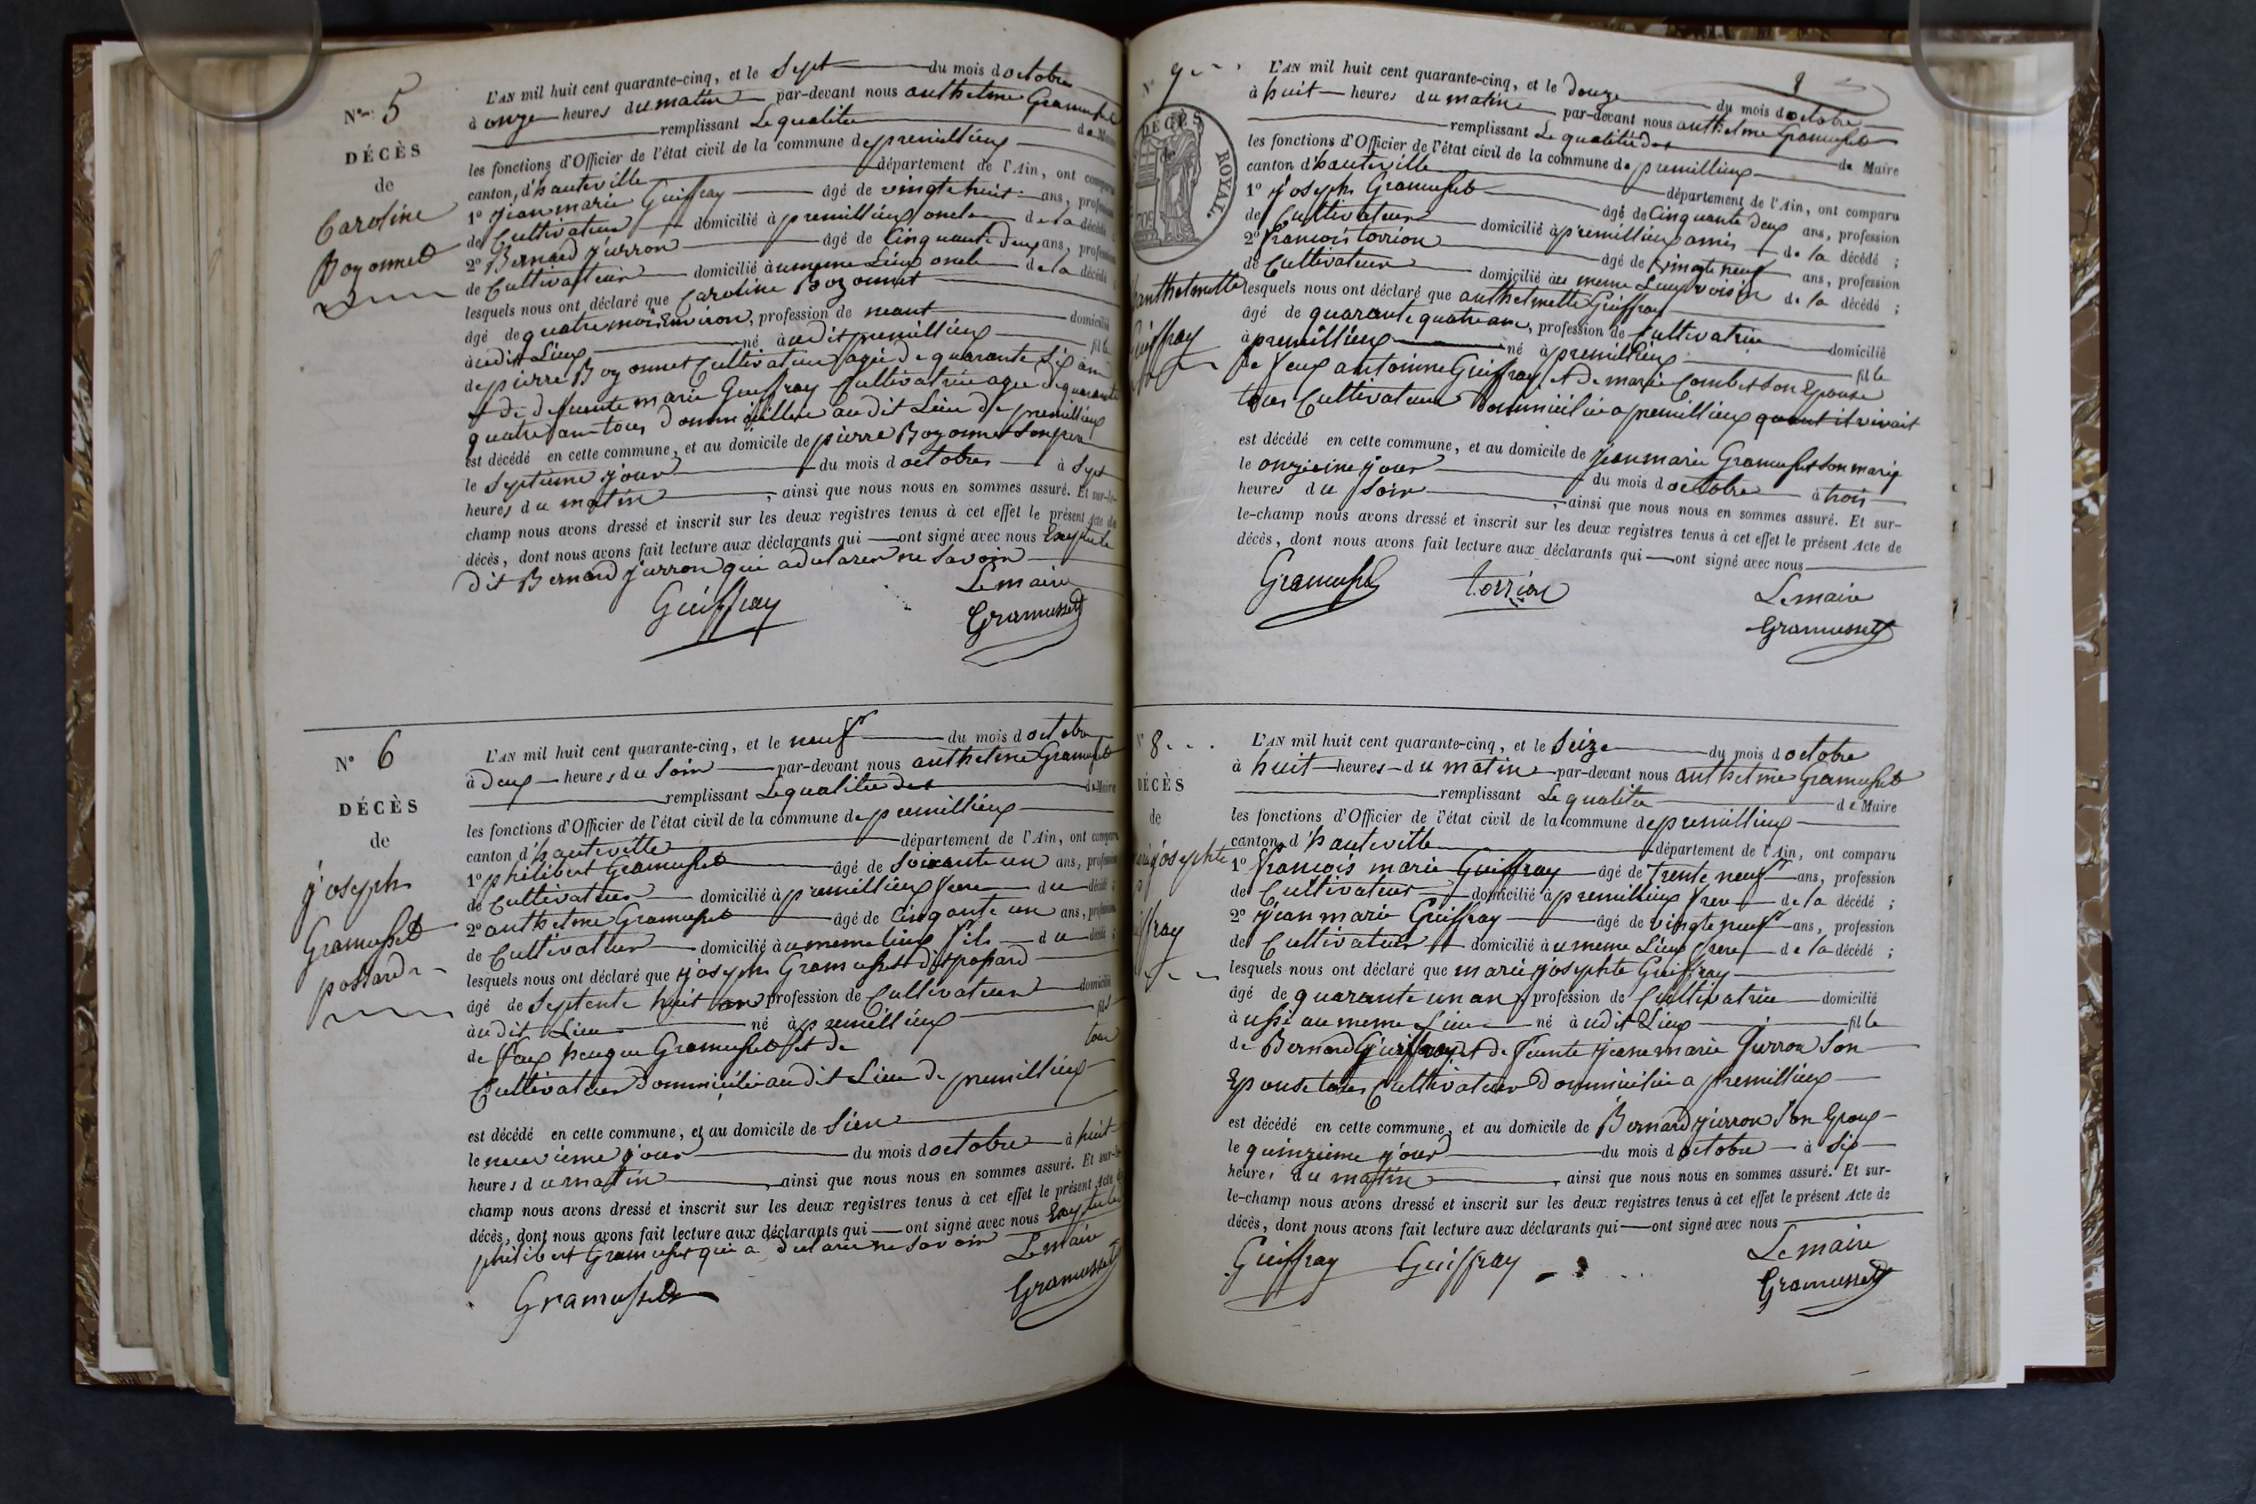 N° 5
DÉCÈS
de
Caroline
Bozonnet
L'AN mil huit cent quarante-cinq, et le Sept du mois d octobre
à onze heures du matin par-devant nous anthelme Gramusset
remplissant Le qualitée de Maire
les fonctions d'Officier de l'état civil de la commune de premillieux
canton, d'hauteville département de l'Ain, ont comparu
1° jean marie Guiffray âgé de vingte huit ans, profession
de Cultivateur domicilié à premillieux oncle de la décédé
2° Bernard jurron âgé de Cinquante deux ans, profession
de Cultivateur domicilié au meme Lieux oncle de la décédé
lesquels nous ont déclaré que Caroline Bozonnet
âgé de quatre mois Environ, profession de neant domicilié
audit Lieux né à udit premillieux fil le
de pierre Bozonnet Cultivateur agée de quarante Six ans
et de defuente marie Guiffray Cultivatrice agee de quarante
quatre ans tous dommicillier audit Lieu de premillieux
est décédé en cette commune, et au domicile de pierre Bozonnet Son pere
le Septieme jour du mois d octobre à Sept
heures du matin, ainsi que nous nous en sommes assuré. Et sur-le-
champ nous avons dressé et inscrit sur les deux registres tenus à cet effet le présent Acte de
décès, dont nous avons fait lecture aux déclarants qui ont signé avec nous Exeptule
dit Bernard jurron qui a declarer ne Savoir
Guiffray
Le maire
Gramusset
N° 6
DÉCÈS
de
joseph
Gramusset
possard
L'AN mil huit cent quarante-cinq, et le neuf du mois d octobre
à Deux heures du Soir par-devant nous anthelme Gramusset
remplissant Le qualitée des de Maire
les fonctions d'Officier de l'état civil de la commune de premillieux
canton d'hauteville département de l'Ain, ont comparu
1° philibert Gramusset âgé de Soixante un ans, profession
de Cultivateur domicilié à premillieux frere du décédé ;
2° anthelme Gramusset âgé de Cinqante un ans, profession
de Cultivateur domicilié au meme lieux fils du décédé ;
lesquels nous ont déclaré que joseph Gramusset dit possard
âgé de Septente huit an profession de Cultivateur domicilié
à udit Lieu né à premillieux fil
de feux hugue Gramusset et de tous
Cultivateur dommicilié audit Lieu de premillieux
est décédé en cette commune, et au domicile de Sien
le neuvieme jour du mois d octobre à huit
heures du matin, ainsi que nous nous en sommes assuré. Et sur-le-
champ nous avons dressé et inscrit sur les deux registres tenus à cet effet le présent Acte de
décès, dont nous avons fait lecture aux déclarants qui ont signé avec nous Exeptule
philibert Gramusset qui a declarer ne Savoir
Gramusset
Le maire
Gramusset
N° 9
8
DÉCÈS
ROYAL.
anthelmette
Guiffray
L'AN mil huit cent quarante-cinq, et le douze du mois d octobre
à huit heures du matin par-devant nous anthelme Gramusset
remplissant Le qualitée des de Maire
les fonctions d'Officier de l'état civil de la commune de premillieux
canton d'hauteville département de l'Ain, ont comparu
1° joseph Gramusset âgé de Cinquante deux ans, profession
de Cultivateur domicilié à premillieux amis de la décédé ;
2° francois torrion âgé de vingte neuf ans, profession
de Cultivateur domicilié au meme Lieux voisin de la décédé ;
lesquels nous ont déclaré que anthelmette Guiffray
âgé de quarante quatre ans, profession de Cultivatrice domicilié
à premillieux né à premillieux fil le
de feux antoinne Guiffray et de marie Combet Son Epouse
tous Cultivateur dommicilié a premillieux quant il vivait
est décédé en cette commune, et au domicile de jean marie Gramusset Son marie
le onzieme jour du mois d octobre à trois
heures du Soir, ainsi que nous nous en sommes assuré. Et sur-
le-champ nous avons dressé et inscrit sur les deux registres tenus à cet effet le présent Acte de
décès, dont nous avons fait lecture aux déclarants qui ont signé avec nous
Gramusset
torrion
Le maire
Gramusset
8
DÉCÈS
de
josephte
L'AN mil huit cent quarante-cinq, et le Seize du mois d octobre
à huit heures du matin par-devant nous anthelme Gramusset
remplissant Le qualitée de Maire
les fonctions d'Officier de l'état civil de la commune de premillieux
canton d'hauteville département de l'Ain, ont comparu
1° francois marie Guiffray âgé de Trente neuf ans, profession
de Cultivateur domicilié à premillieux frere de la décédé ;
2° jean marie Guiffray âgé de vingte neuf ans, profession
de Cultivateur domicilié au meme Lieux frere de la décédé ;
lesquels nous ont déclaré que marie josephte Guiffray
âgé de quarante un an, profession de Cultivatrice domicilié
à ussi au meme Lieu né à udit Lieux fil le
de Bernard Guiffray et de feuente jeanne marie jurron Son
Epouse tous Cultivateur dommicilié a premillieux
est décédé en cette commune, et au domicile de Bernard jurron Son Epoux
le quinzieme jour du mois d octobre à Six
heures du matin, ainsi que nous nous en sommes assuré. Et sur-
le-champ nous avons dressé et inscrit sur les deux registres tenus à cet effet le présent Acte de
décès, dont nous avons fait lecture aux déclarants qui ont signé avec nous
Guiffray
Guiffray
Le maire
Gramusset